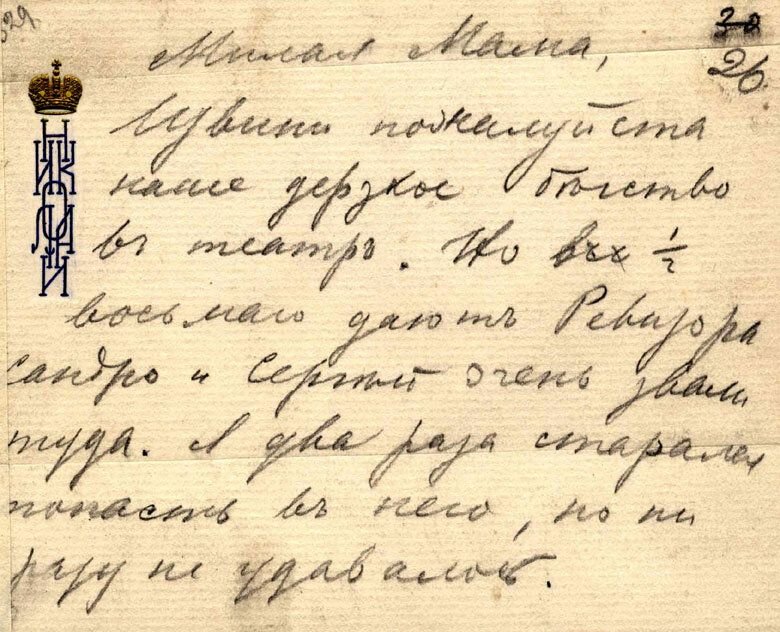 329
32
26
Милая Мама,
Извини пожалуйста
наше дерзкое бѣгство
въ театръ. Но въ 1/2
восьмаго даютъ Ревизора
Сандро и Сергѣй очень звали
туда. Я два раза старался
попасть въ него, но ни
разу не удавалось.